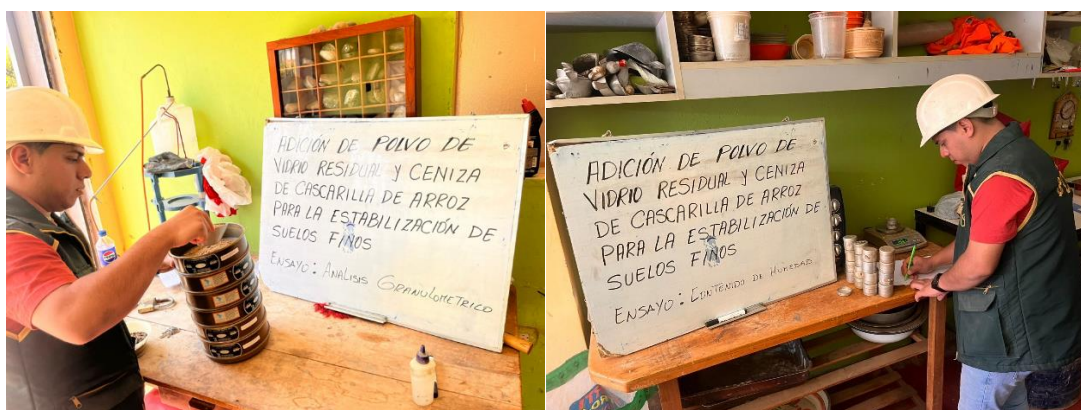 ADICIÓN DE POLVO DE
VIDRIO RESIDUAL Y CENIZA
DE CASCARILLA DE ARROZ
PARA LA ESTABILIZACIÓN DE
SUELOS FINOS
ENSAYO: ANALISIS GRANULOMETRICO
ADICIÓN DE POLVO DE
VIDRIO RESIDUAL Y CENIZA
DE CASCARILLA DE ARROZ
PARA LA ESTABILIZACIÓN DE
SUELOS FINOS
ENSAYO: CONTENIDO DE HUMEDAD